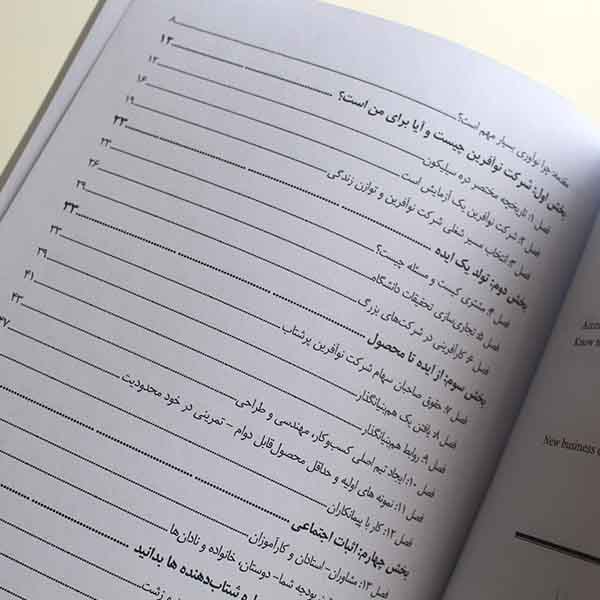 مقدمه: چرا نوآوری بسیار مهم است؟ ۸
بخش اول: شرکت نوآفرین چیست و آیا برای من است؟ ۱۲
فصل ۱: تاریخچه مختصر دره سیلیکون ۱۲
فصل ۲: شرکت نوآفرین یک آزمایش است ۱۶
فصل ۳: انتخاب مسیر شغلی شرکت نوآفرین و توازن زندگی ۱۹
بخش دوم: تولد یک ایده ۲۳
فصل ۴: مشتری کیست و مسئله چیست؟ ۲۳
فصل ۵: تجاری‌سازی تحقیقات دانشگاه ۲۶
فصل ۶: کارآفرینی در شرکت‌های بزرگ ۲۹
بخش سوم: از ایده تا محصول ۳۳
فصل ۷: حقوق صاحبان سهام شرکت نوآفرین پرشتاب ۳۳
فصل ۸: یافتن یک هم‌بنیانگذار ۳۹
فصل ۹: روابط هم‌بنیانگذار ۴۱
فصل ۱۰: ایجاد تیم اصلی کسب‌وکار، مهندسی و طراحی ۴۳
فصل ۱۱: نمونه های اولیه و حداقل محصول‌قابل دوام – تمرینی در خود محدودیت ۴۷
فصل ۱۲: کار با پیمانکاران
بخش چهارم: اثبات اجتماعی
فصل ۱۳: مشاوران– استادان و کارآموزان
بودجه شما– دوستان، خانواده و نادان‌ها
شتاب‌دهنده ها بدانید
و زشت
Know
New business